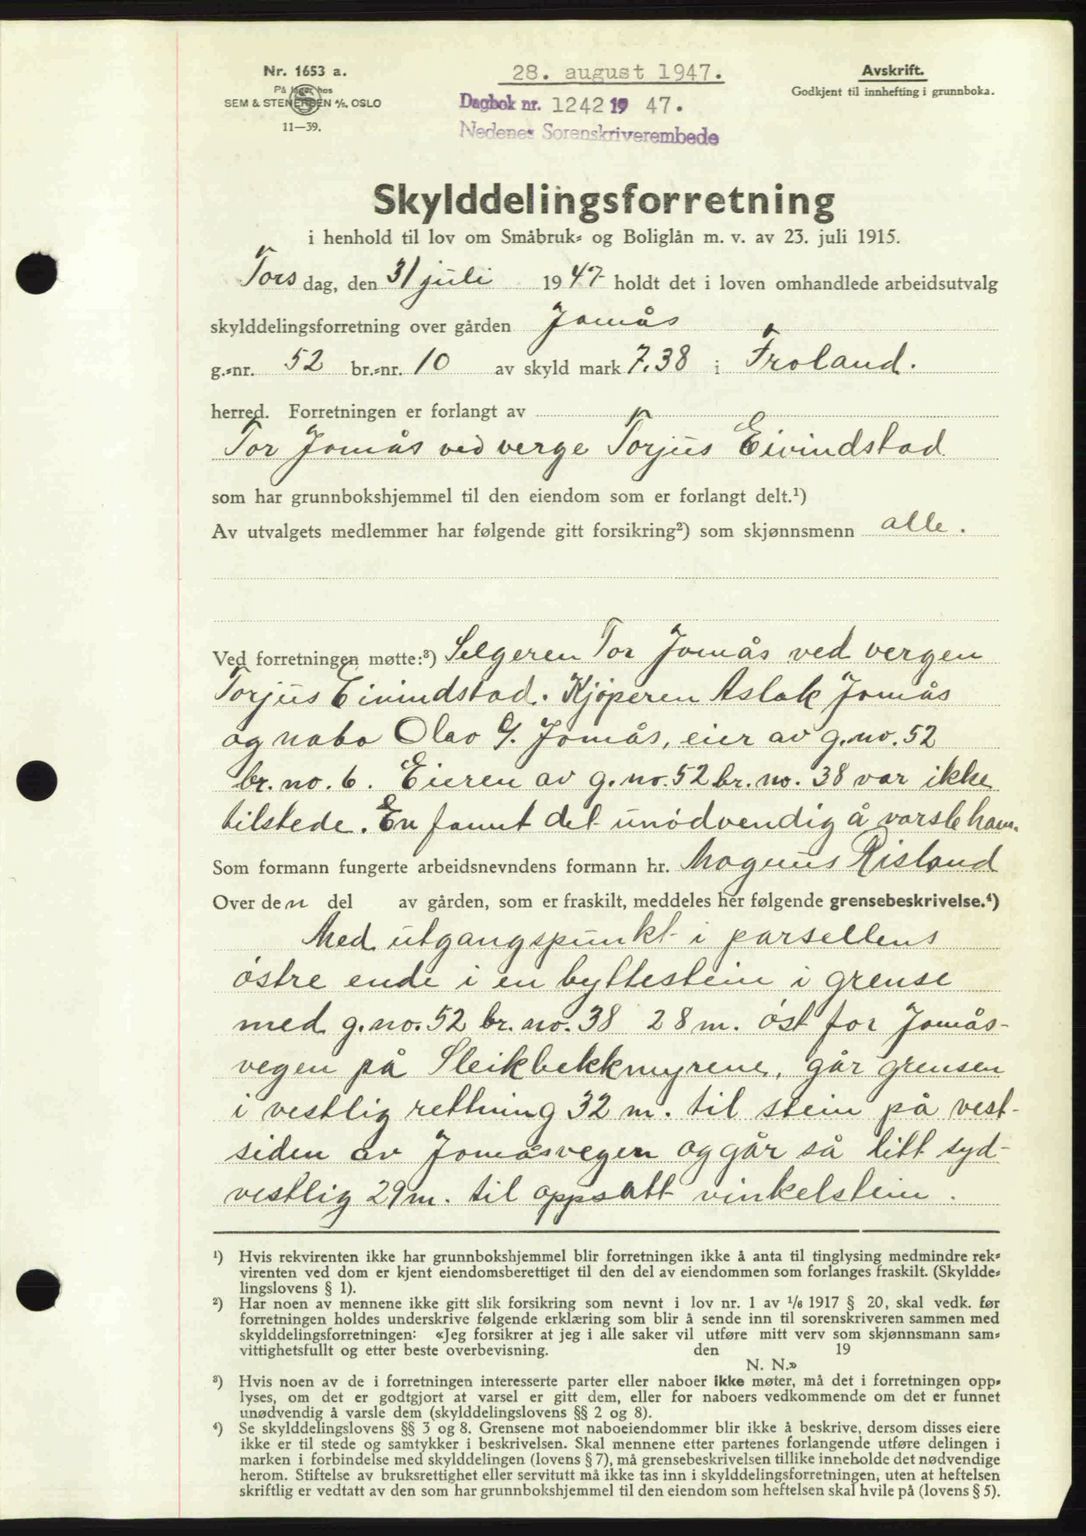 Nr. 1653 a.
På lager hos
SEM & STENERSEN A/S. OSLO
11—39.
28. august 1947.
Dagbok nr. 1242 19 47.
Nedenes Sorenskriverembede
Avskrift.
Godkjent til innhefting i grunnboka.
Skylddelingsforretning
i henhold til lov om Småbruk- og Boliglån m. v. av 23. juli 1915.
Torsdag, den 31 juli 1947 holdt det i loven omhandlede arbeidsutvalg
skylddelingsforretning over gården Jomås
g.-nr. 52 br.-nr. 10 av skyld mark 7.38 i Froland.
herred. Forretningen er forlangt av
Tor Jomås ved verge Torjus Eivindstad
som har grunnbokshjemmel til den eiendom som er forlangt delt.¹)
Av utvalgets medlemmer har følgende gitt forsikring²) som skjønnsmenn alle.
Ved forretningen møtte:³) Selgeren Tor Jomås ved vergen
Torjus Eivindstad. Kjøperen Aslak Jomås
og nabo Olav G. Jomås, eier av g.no. 52
br.no. 6. Eieren av g.no. 52 br.no. 38 var ikke
tilstede. En fannt det unødvendig å varsle ham.
Som formann fungerte arbeidsnevndens formann hr. Magnus Risland
Over den del av gården, som er fraskilt, meddeles her følgende grensebeskrivelse.⁴)
Med utgangspunkt i parsellens
østre ende i en byttestein i grense
med g.no. 52 br.no. 38 28 m. øst for Jomås-
vegen på Sleikbekkmyrene, går grensen
i vestlig rettning 32 m. til stein på vest-
siden av Jomåsvegen og går så litt syd-
vestlig 29 m. til oppsatt vinkelstein.
¹) Hvis rekvirenten ikke har grunnbokshjemmel blir forretningen ikke å anta til tinglysing medmindre rek-
virenten ved dom er kjent eiendomsberettiget til den del av eiendommen som forlanges fraskilt. (Skyldde-
lingslovens § 1).
²) Har noen av mennene ikke gitt slik forsikring som nevnt i lov nr. 1 av 1/6 1917 § 20, skal vedk. før
forretningen holdes underskrive følgende erklæring som blir å sende inn til sorenskriveren sammen med
skylddelingsforretningen: «Jeg forsikrer at jeg i alle saker vil utføre mitt verv som skjønnsmann sam-
vittighetsfullt og etter beste overbevisning. den 19
N. N.»
³) Hvis noen av de i forretningen interesserte parter eller naboer ikke møter, må det i forretningen opp-
lyses, om det er godtgjort at varsel er gitt dem, eller for naboers vedkommende om det er funnet
unødvendig å varsle dem (skylddelingslovens §§ 2 og 8).
⁴) Se skylddelingslovens §§ 3 og 8. Grensene mot naboeiendommer blir ikke å beskrive, dersom disses eiere
ikke er til stede og samtykker i beskrivelsen. Skal mennene etter partenes forlangende utføre delingen i
marken i forbindelse med skylddelingen (lovens § 7), må grensebeskrivelsen tillike inneholde det nødvendige
herom. Stiftelse av bruksrettighet eller servitutt må ikke tas inn i skylddelingsforretningen, uten at heftelsen
skriftlig er vedtatt av den som har grunnbokshjemmel til den eiendom som heftelsen skal hvile på (lovens § 5).